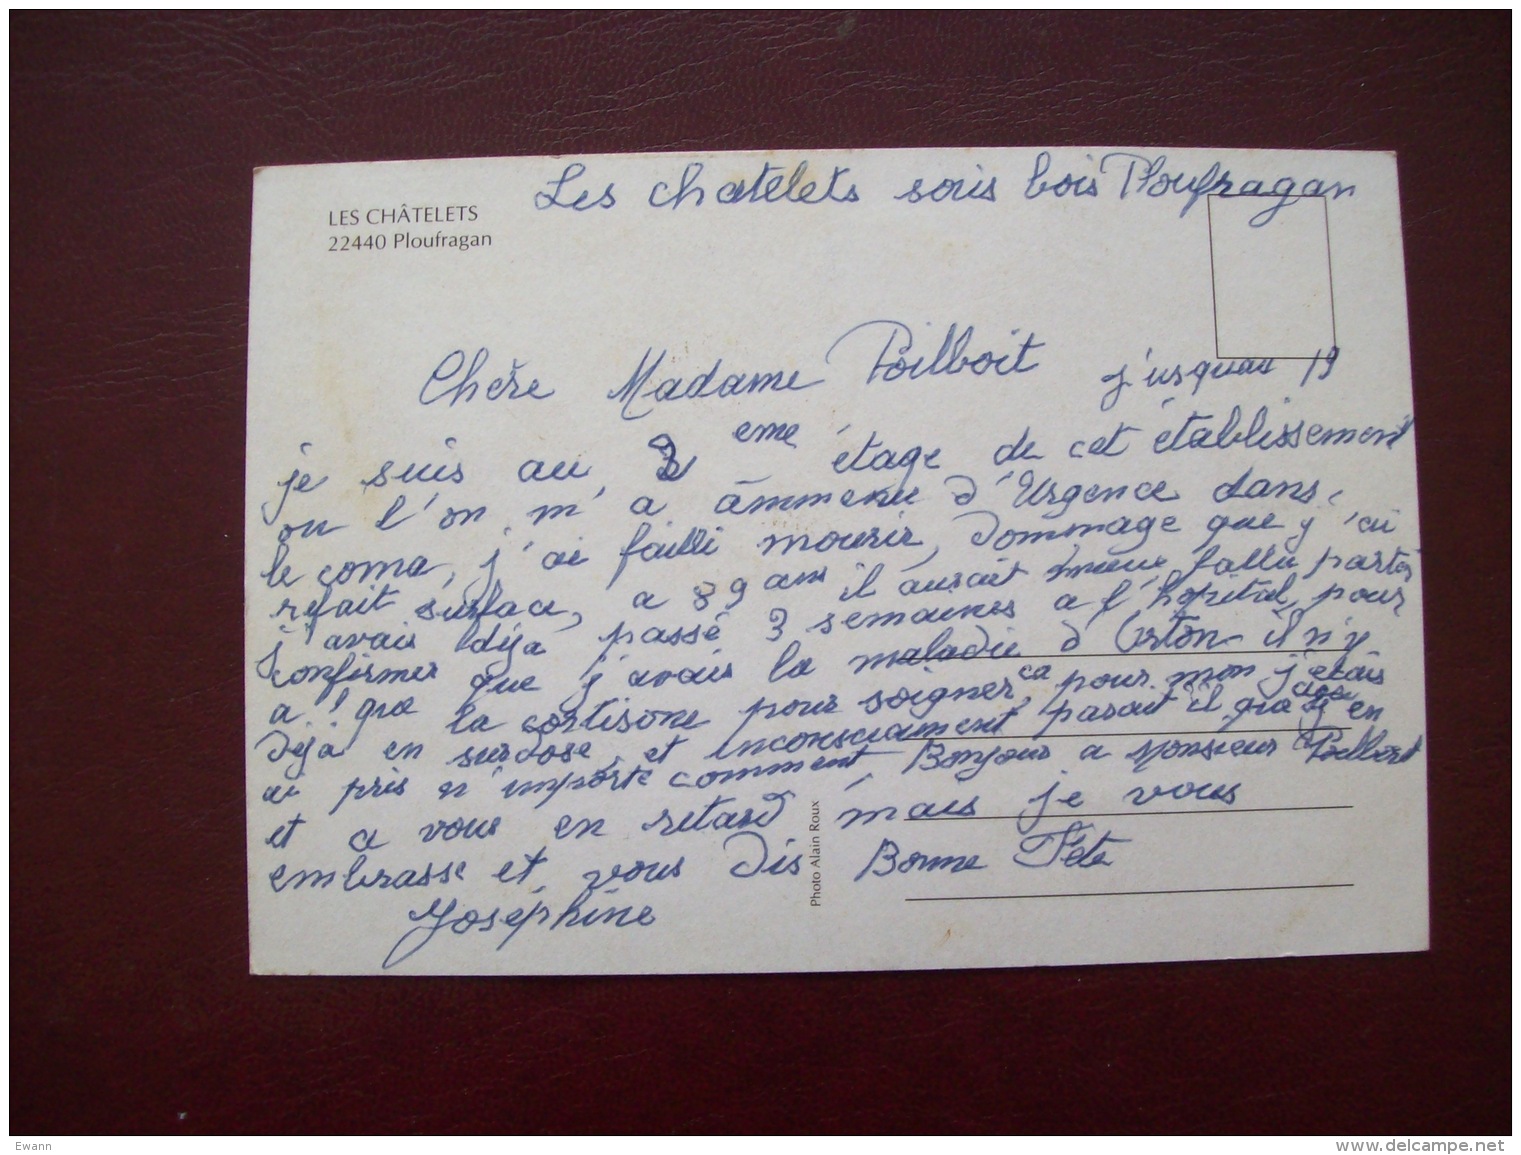 Les chatelets sous bois Ploufragan
LES CHÂTELETS
22440 Ploufragan
Chère Madame Poilboit j'usquau 19
je suis au 2 eme étage de cet établissement
ou l'on m'a ammenée d'Urgence dans
le coma, j'ai failli mourir, dommage que j'ai
refait surface, a 89 ans il aurait mieux fallu partir
j'avais déja passé 3 semaines a l'hopital pour
confirmer que j'avais la maladie d'Orton il n'y
a que la cortisone pour soigner ca pour mon j'étais
Déja en surdose et inconsciament parait il que j'en
ai pris n'importe comment Bonjour a Monsieur Poilboit
et a vous en retard mais je vous
embrasse et vous dis Bonne Fete
Joséphine
Photo Alain Roux
Ewann
www.delcampe.net